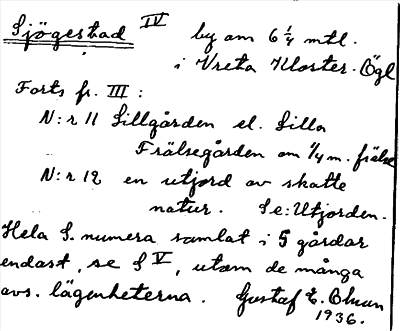 Sjögestad IV by om 6 1/4 mtl.
i Vreta Kloster. Ögl
Forts fr. III:
N:r 11 Lillgården el. Lilla
Frälsegården om 1/4 m. frälse
N:r 12 en utjord av skatte
natur. Se: Utjorden.
Hela S. numera samlat i 5 gårdar
endast, se S V, utom de många
avs. lägenheterna. Gustaf E.
1936.